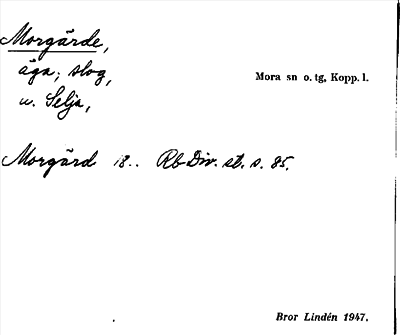 Morgärde,
äga; slog,
u. Selja,
Mora sn o. tg, Kopp. l.
Morgärd 18.. Rb Div. st. s. 85.
Bror Lindén 1947.